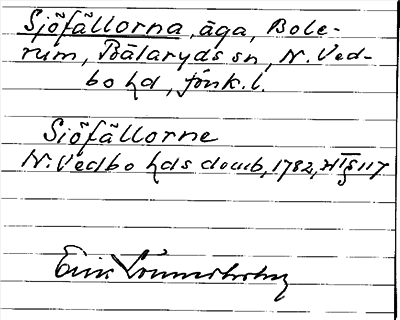 Sjöfällorna, äga, Bole-
rum, Bälaryds sn, N. Ved-
bo hd, Jönk. l.
Siöfällorne
N. Vedbo hds domb, 1782, § 117
Erik